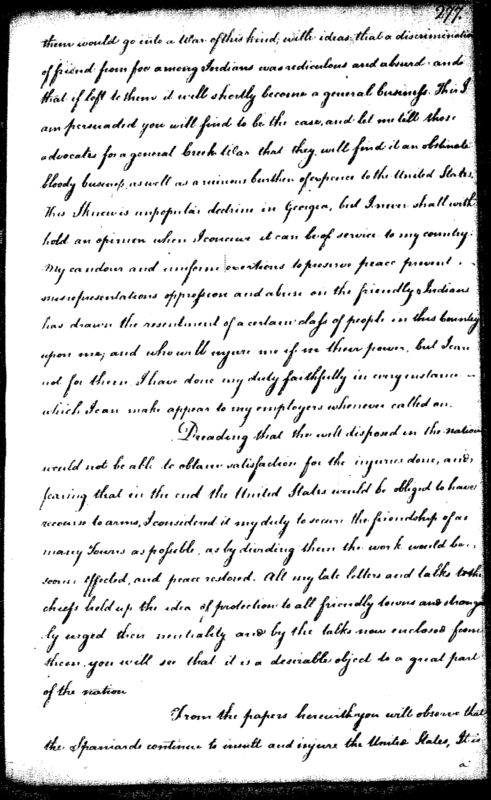 277.
them would go into a War of this kind, with ideas that a discrimination
of friend from foe among Indians was rediculous and absurd and
that if left to them it will shortly become a general business. This I
am persuaded you will find to be the case, and let me tell those
advocates for a general Creek War that they will find it an obstinate
bloody business, as well as a ruinous burthen of expence to the United States.
This I know is unpopular doctrine in Georgia, but I never shall with
hold an opinion when I conceive it can be of service to my country.
My candour and uniform exertions to preserve peace prevent
misrepresentations oppression and abuse on the friendly Indians
has drawn the resentment of a certain class of people in this Country
upon me, and who will injure me if in their power, but I care
not for them. I have done my duty faithfully in every instance
which I can make appear to my employers whenever called on.
Dreading that the well disposed in the nation
would not be able to obtain satisfaction for the injuries done, and,
fearing that in the end the United States would be obliged to have
recourse to arms, I considered it my duty to secure the friendship of as
many Towns as possible, as by dividing them the work would be
sooner effected, and peace restored. All my late letters and talks to the
chiefs held up the idea of protection to all friendly towns and strong
ly urged their neutrality and by the talks now enclosed from
them, you will see that it is a desirable object to a great part
of the nation
From the papers herewith you will observe that
the Spaniards continue to insult and injure the United States, It is
a